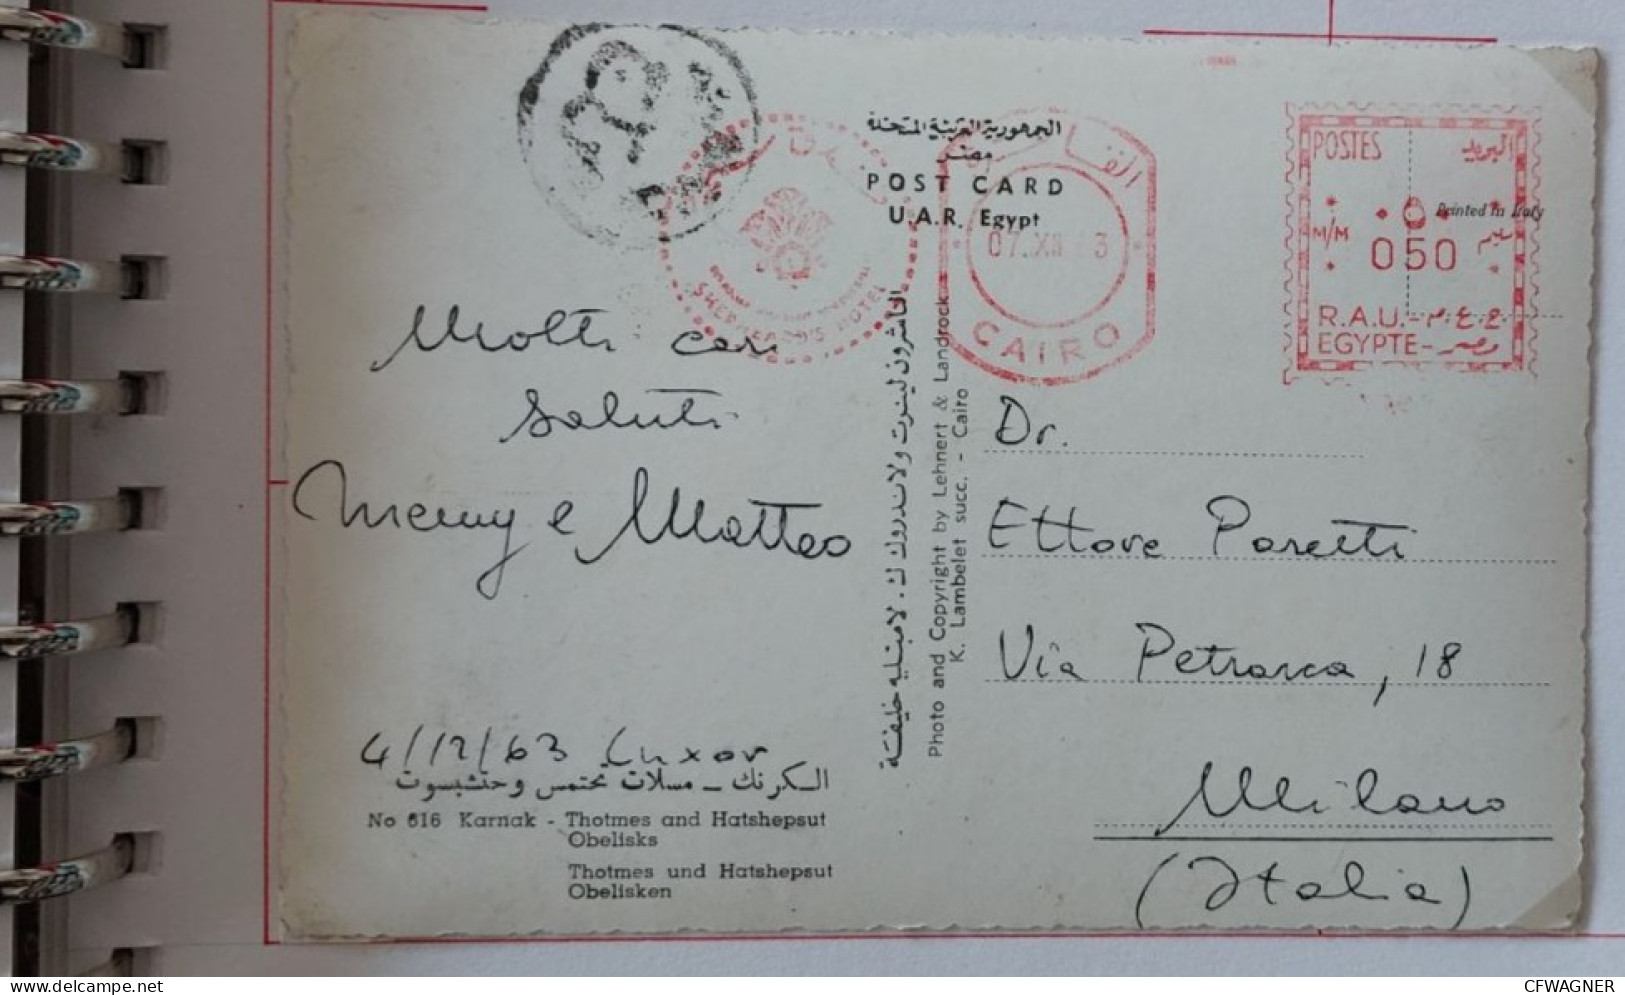 الجمهورية العربية المتحدة
مصر
POST CARD
U.A.R. Egypt
SHEPHEARD'S HOTEL
القاهرة
07.XII 3
CAIRO
POSTES البريد
M/M ٥٠ مليم
050
R.A.U.-ج.ع.م
EGYPTE-مصر
Printed in Italy
Molti cari
saluti
Memy e Matteo
4/12/63 Luxor
الكرنك – مسلات تحتمس وحتشبسوت
No 616 Karnak - Thotmes and Hatshepsut
Obelisks
Thotmes und Hatshepsut
Obelisken
الناشرون لينرت ولاندروك ك. لامبليه خليفة
Photo and Copyright by Lehnert & Landrock
K. Lambelet succ. - Cairo
Dr.
Ettore Paretti
Via Petrarca, 18
Milano
(Italia)
CFWAGNER
delcampe.net